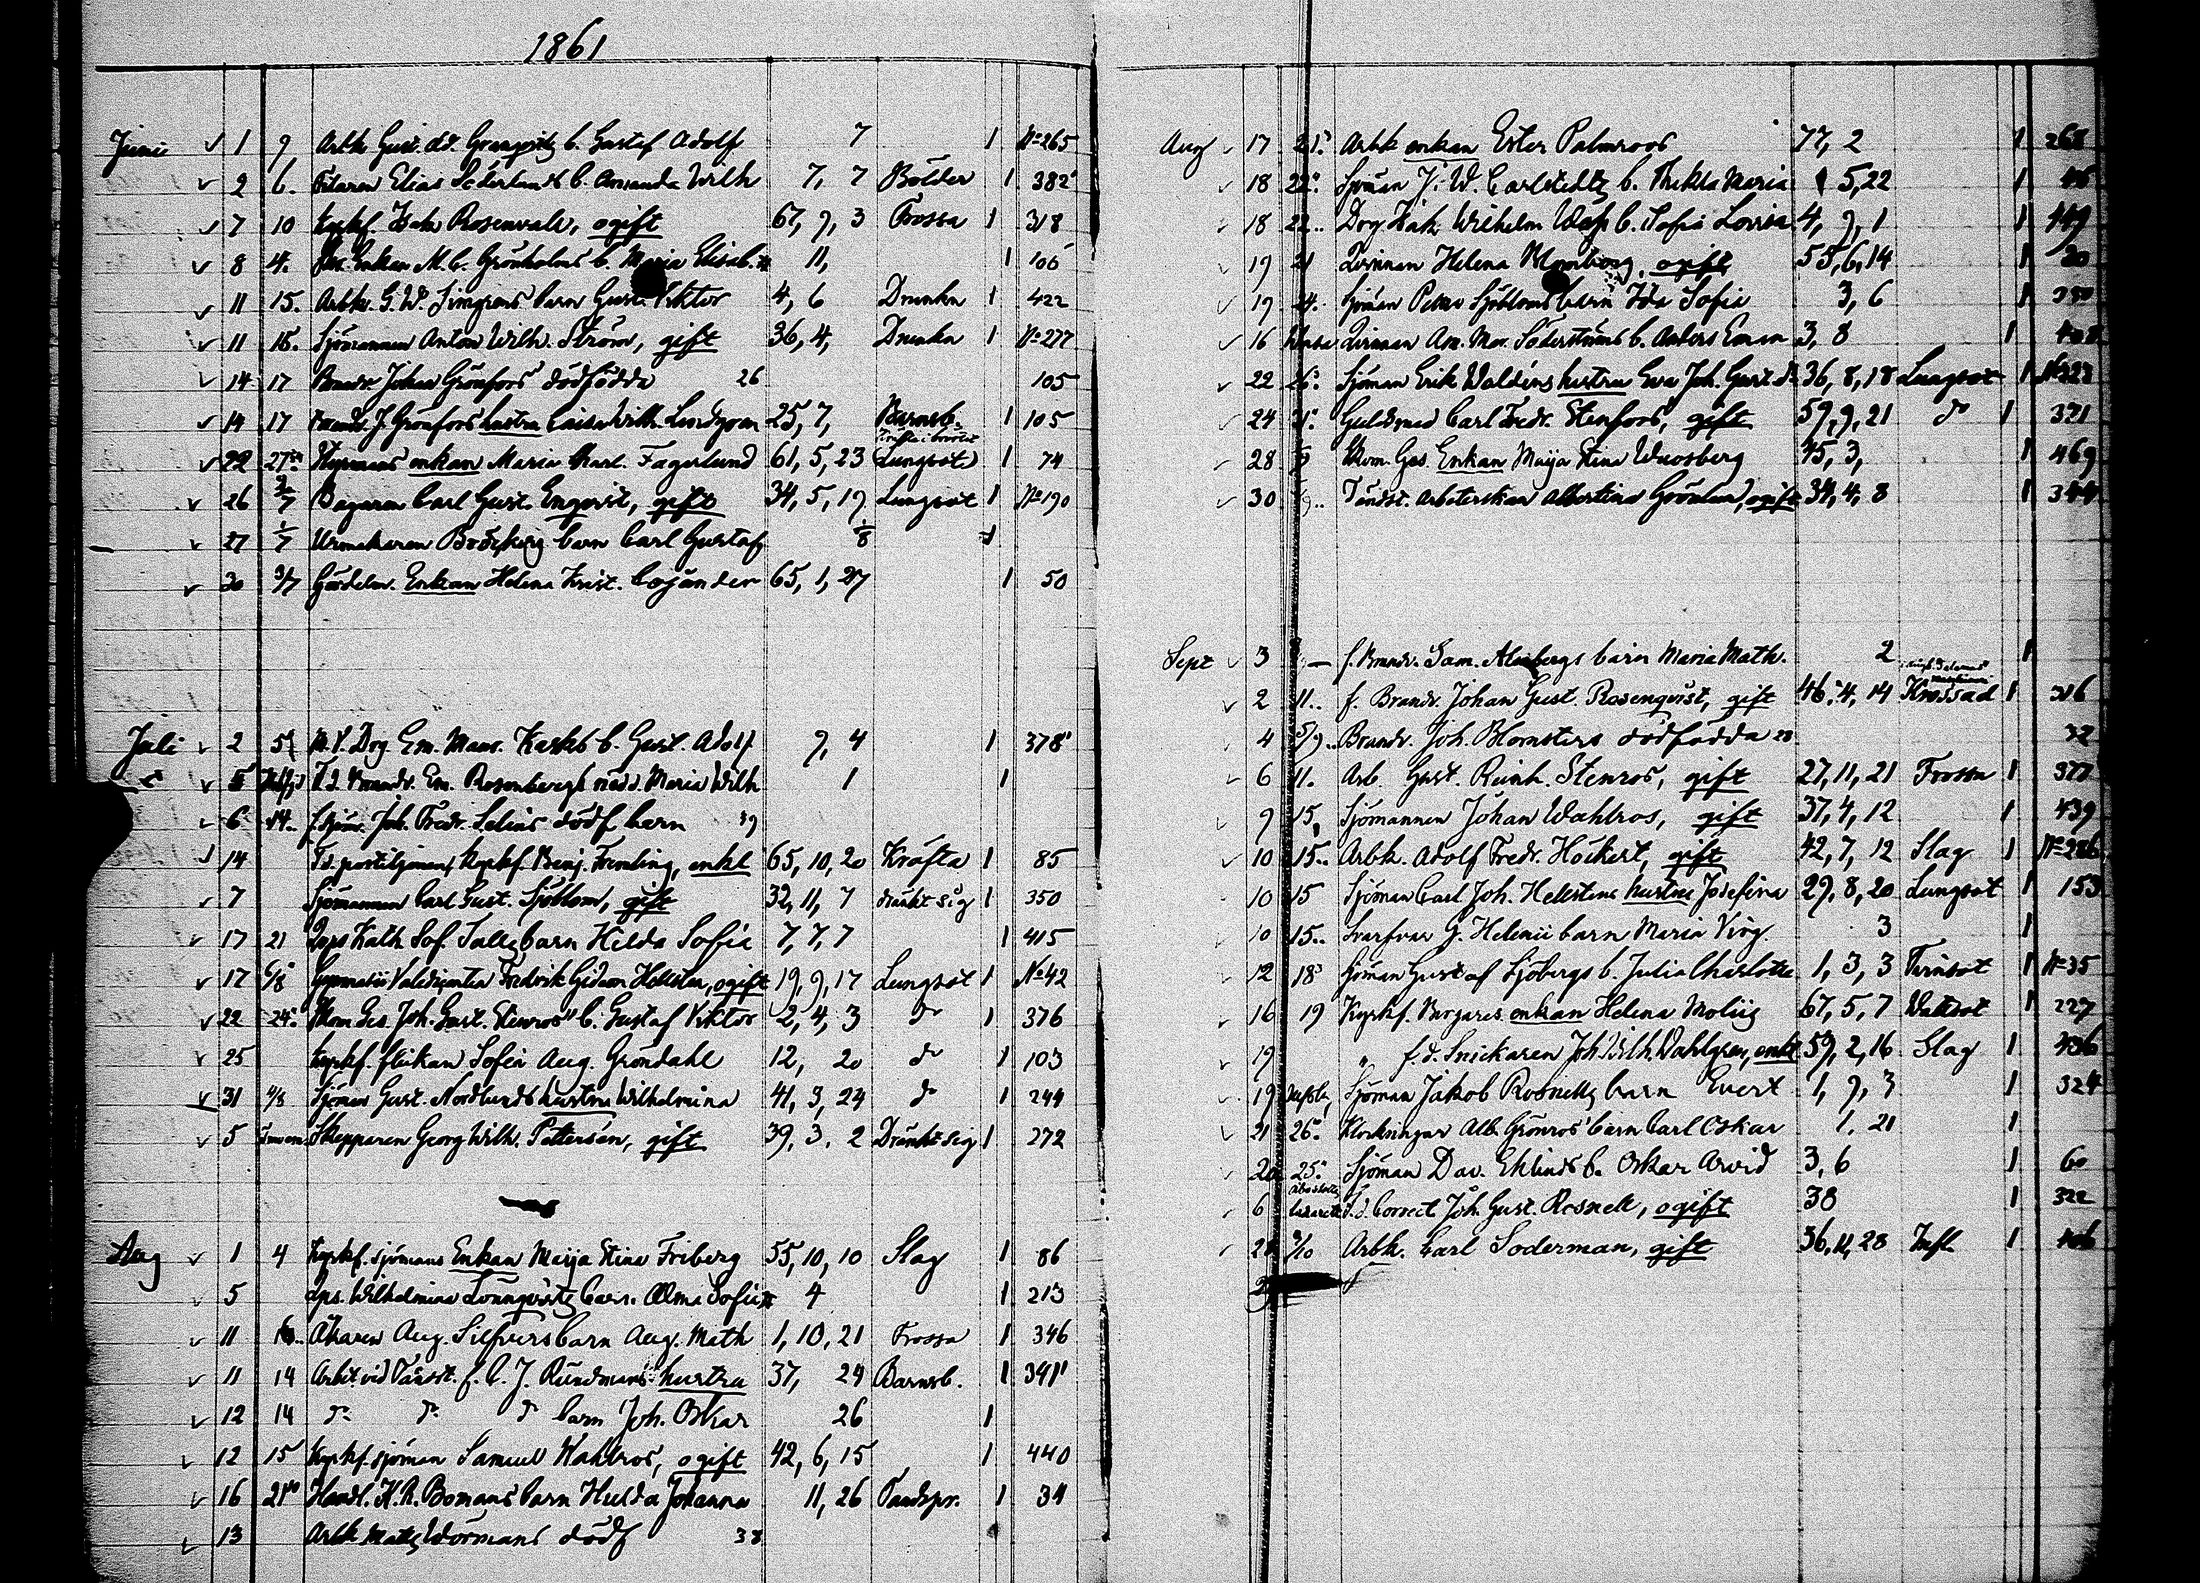 1861
Juni 1 9 Arbk Gust. Ad. b. Gustaf Adolf 7 1 No 265
2 6. Elias Söderlunds b. Amanda Wilh 7, 7 Bölder 1 382
7 10 Kyrkf. Isak Rosenvall, ogift 67, 9, 3 Frossa 1 318
8 4. Enkan M. C. Grönholms b. Maria Elisab. 11, 1 106
11 15. Arbk. G. W. barn Gust. Viktor 4, 6 Drunkn 1 422
11 15. Sjömannen Anton Wilh. Ström, gift 36, 4, Drunkn 1 No 277
14 17 Brandv. Johan Grönfors dödfödda 26 105
14 17 Brandv. J. Grönfors hustru Wilh. Lindgren 25, 7, Barnsb. 1 105
22 27 Styrmans enkan Maria Charl. Fagerlund 61, 5, 23 (Lungsot) 1 74
26 2/7 Bagaren Carl Gust. Enqvist, gift 34, 5, 19 Lungsot 1 No 190
27 1/7 Urmakaren barn Carl Gustaf 8 1
30 3/7 Enkan Helena Krist. Cajander 65, 1, 27 1 50
Juli 2 5 Drg Em. Maur. b. Gust. Adolf 9, 4 1 378
5 Brandv. Em. Rosenbergs Maria Wilh 1 1
6 14.. Joh. Fredr. Selins dödf barn 39
14 kyrkf. Benj. Fremling, enkl 65, 10, 20 Kräfta 1 85
7 Sjömannen Carl Gust. Sjöblom, gift 32, 11, 7 dränkt sig 1 350
17 21 Kath Sof. barn Hilda Sofia 7, 7, 7 1 415
17 6/8 Fredrik Gideon Hellsten, ogift 19, 9, 17 Lungsot 1 No 42
22 24. Joh. Gust. Stenros' b. Gustaf Viktor 2, 4, 3 do 1 376
25 Kyrkf. flickan Sofia Aug. Gröndahl 12, 20 do 1 103
31 4/8 Sjöman Gust. Nordlunds hustru Wilhelmina 41, 3, 24 do 1 244
5 Skepparen Georg Wilh. Pettersén, gift 39, 3, 2 Dränkt sig 1 272
Aug 1 4 Kyrkf. sjömans Enkan Maija Stina Friberg 55, 10, 10 Slag 1 86
5 Wilhelmina Lönnqvists barn Alma Sofia 4 1 213
11 Åkaren Aug. Silfvers barn Aug. Math 1, 10, 21 Frossa 1 346
11 14 Arbet. vid f. C. J. Rundmans hustru 37, 24 Barnsb. 1 341
12 14 do do do barn Joh. Oskar 26 1
12 15 Kyrkf. sjöman Samuel Wahlros, ogift 42, 6, 15 1 440
16 21 Handl. K. R. Bomans barn Hulda Johanna 11, 26 Tandspr. 1 34
13 Arbk Matts Wörmans dödf 38
Aug 17 21. Arbk enkan Ester Palmroos 77, 2 1 268
18 22. Sjöman J. W. Carlstedts b. Thekla Maria 5, 22 1 46
18 22.. Drg Isak Wilhelm b. Sofia Lovisa 4, 9, 1 1 449
19 21 Qvinnan Helena Blomborg, ogift 55, 6, 14 1 20
19 24. Sjöman Petter Sjöbloms barn Ida Sofia 3, 6 1 350
16 Qvinnan An. Mar. Söderströms b. Anders Eman 3, 8 1 408
22 26. Sjöman Erik Waldéns hustru Eva Joh. Gust. D. 36, 8, 18 Lungsot 1 No 423
24 31. Guldsmed Carl Fredr. Stenfors, gift 59, 9, 21 do 1 371
28 Enkan Maija Stina 45, 3, 1 469
30 Arbeterskan Albertina Grönlund, ogift 34, 4, 8 1 344
Sept 3 f. Brandv. Sam. barn Maria Math. 2 1
2 11.. f. Brandv. Johan Gust. Rosenqvist, gift 46, 4, 14 Krossad 1 316
4 5/9.. Brandv. Joh. Blomsters dödfödda 32
6 11. Arb. Gust. Reinh. Stenros, gift 27, 11, 21 Frossa 1 377
9 15, Sjömannen Johan Wahlros, gift 37, 4, 12 1 439
10 15.. Arbk. Adolf Fredr. Höckert, gift 42, 7, 12 Slag 1 No 286
10 15 Sjöman Carl Joh. Hellstens hustru Josefina 29, 8, 20 Lungsot 1 153
10 15.. Svarfvar G. Helenii barn Maria Virg. 3 1
12 18 Sjöman Gustaf Sjöbergs b. Julia Charlotta 1, 3, 3 Tvinsot 1 No 35
16 19 Kyrkf. Borgares enkan Helena Moliis 67, 5, 7 Wattsot 1 227
19 " f.d. Snickaren Joh Wilh. Dahlgren, enkl 59, 2, 16 Slag 1 436
19 Sjöman Jakob Rosnells barn Evert 1, 9, 3 1 324
21 26. Klockringar Alb. Grönroos' barn Carl Oskar 1, 21 1
20 25. Sjöman Dav. Ehlinds b. Oskar Arvid 3, 6 1 60
6 Joh. Gust. Rosnell, ogift 38 1 322
21 9/10 Arbk. Carl Söderman, gift 36, 11, 28 Infl. 1 406